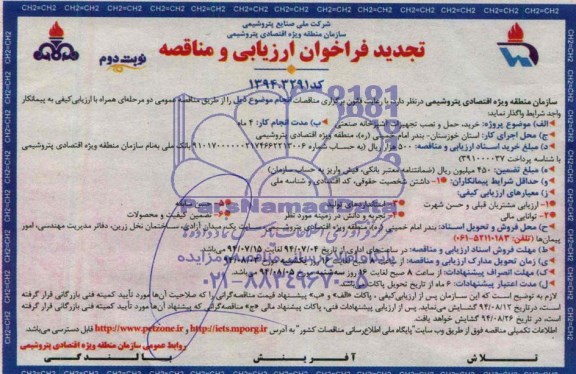 شرکت ملی صنایع پتروشیمی
سازمان منطقه ویژه اقتصادی پتروشیمی
تجدید فراخوان ارزیابی و مناقصه
نوبت دوم
کد ۱۳۹۴۰۳۲۹۱
سازمان منطقه ویژه اقتصادی پتروشیمی درنظر دارد، با رعایت قانون برگزاری مناقصات انجام موضوع ذیل را از طریق مناقصه عمومی دو مرحله‌ای همراه با ارزیابی کیفی به پیمانکار
واجد شرایط واگذار نماید:
الف) موضوع پروژه: خرید، حمل و نصب تجهیزات آشپزخانه صنعتی ب) مدت انجام کار: ۴ ماه
ج) محل اجرای کار: استان خوزستان- بندر امام خمینی (ره)، منطقه ویژه اقتصادی پتروشیمی
د) مبلغ خرید اسناد ارزیابی و مناقصه: ۵۰۰ هزار ریال (به حساب شماره بانک ملی به‌نام سازمان منطقه ویژه اقتصادی پتروشیمی
با شناسه پرداخت ۳۹۱۰۰۰۰۳۷)
ه) مبلغ تضمین: ۴۵۰ میلیون ریال (ضمانتنامه معتبر بانکی، فیش واریز به حساب سازمان)
و) حداقل شرایط پیمانکاران: ۱- داشتن شخصیت حقوقی، کد اقتصادی و شناسه ملی
ز) معیارهای ارزیابی کیفی:
۱- ارزیابی مشتریان قبلی و حسن شهرت
۴- توانایی مالی تجربه و دانش در زمینه مورد نظر تضمین کیفیت و محصولات
ح) محل فروش و تحویل اسناد: بندر امام خمینی (ره)، منطقه ویژه اقتصادی پتروشیمی، سایت یک، میدان آزادی، ساختمان نخل زرین، دفاتر مدیریت مهندسی، امور
پیمان‌ها (تلفن: ۵۲۱۱۰۱۸۳-۰۶۱)
ط) مهلت فروش اسناد ارزیابی و مناقصه: در ساعت‌های اداری از تاریخ ۹۴/۰۷/۰۴ لغایت ۹۴/۰۷/۱۵ می‌باشد.
ی) زمان تحویل مدارک ارزیابی و مناقصه: از ساعت
ک) مهلت انصراف پیشنهادات: از ساعت ۸ صبح لغایت ۱۶ روز سه‌شنبه مورخ ۹۴/۰۸/۰۵ می‌باشد.
ل) مدت اعتبار پیشنهادات: ۶ ماه از تاریخ تحویل پاکات می‌باشد.
لازم به توضیح است که این سازمان پس از ارزیابی کیفی، پاکات «الف» و «ب» پیشنهاد قیمت مناقصه‌گرانی را که صلاحیت آن‌ها مورد تأیید کمیته فنی بازرگانی قرار گرفته
است، در تاریخ ۹۴/۰۸/۱۲ گشایش می‌نماید. پس از ارزیابی پیشنهادات فنی، پاکات پیشنهاد مالی «ج» مناقصه‌گرانی که پیشنهاد آن‌ها مورد تأیید کمیته فنی بازرگانی قرار گرفته
است، در تاریخ ۹۴/۰۸/۲۶ گشایش خواهد یافت.
اطلاعات تکمیلی مناقصه فوق از طریق وب سایت "پایگاه ملی اطلاع‌رسانی مناقصات کشور" به آدرس http://iets.mporg.ir و http://www.petzone.ir قابل دسترسی می‌باشد.
روابط عمومی سازمان منطقه ویژه اقتصادی پتروشیمی
تلاش آفرینش بالندگی
ParsNamadData
۰۲۱-۸۸۳۴۹۶۷۰-۵